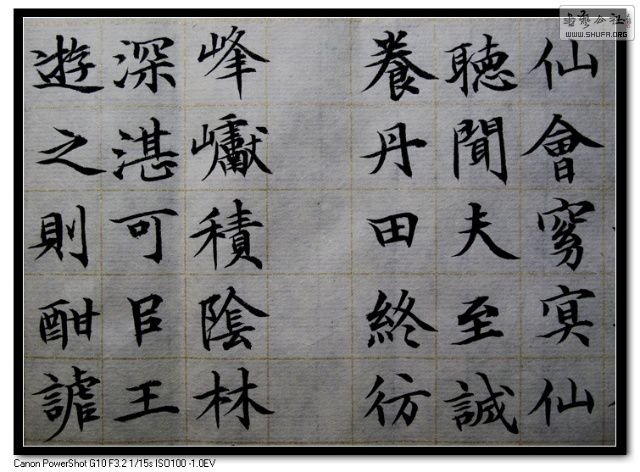 书艺公社
WWW.SHUFA.ORG
仙會窈冥仙
聽聞夫至誠
養丹田終彷
峰巘積陰林
深湛可臣王
遊之則酣謔
Canon PowerShot G10 F3.2 1/15s ISO100 -1.0EV